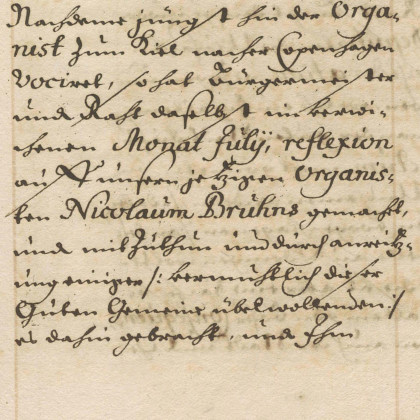 Nachdeme jüngst hin der Orga-
nist zum Kiel nacher Copenhagen
vociret, so hat Bürgermeister
und Raht daselbst im verwi-
chenen Monat Julij, reflexion
auff unsern jetzigen Organis-
ten Nicolaum Bruhns gemachet,
und mit Zuthun und durch anreitz-
ung einiger /: vermuhtlich dieser
Guten Gemeine übelwollenden :/
es dahin gebracht, und Ihm